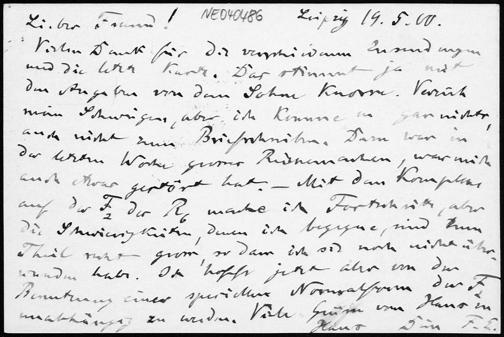 Lieber Freund! NE040486 Leipzig 19.5.00.
Vielen Dank für die verschiedenen Zusendungen
und die letzte Karte. Das stimmt ja mit
den Angaben von dem Sohne Verzeih
mein Schweigen, aber ich komme zu gar nichts,
auch nicht zum Briefschreiben. Dazu war in
der letzten Woche grosses Reinemachen, was mich
auch etwas gestört hat. – Mit den Komplexen
auf der F₂ der R₆ mache ich Fortschritte, aber
die Schwierigkeiten, denen ich begegne, sind zum
Theil recht gross, so dass ich sie noch nicht über-
wunden habe. Ich hoffe jetzt aber von der
Benutzung einer speciellen Normalform der F₂
unabhängig zu werden. Viele Grüsse von Haus zu
Haus Dein F. E.